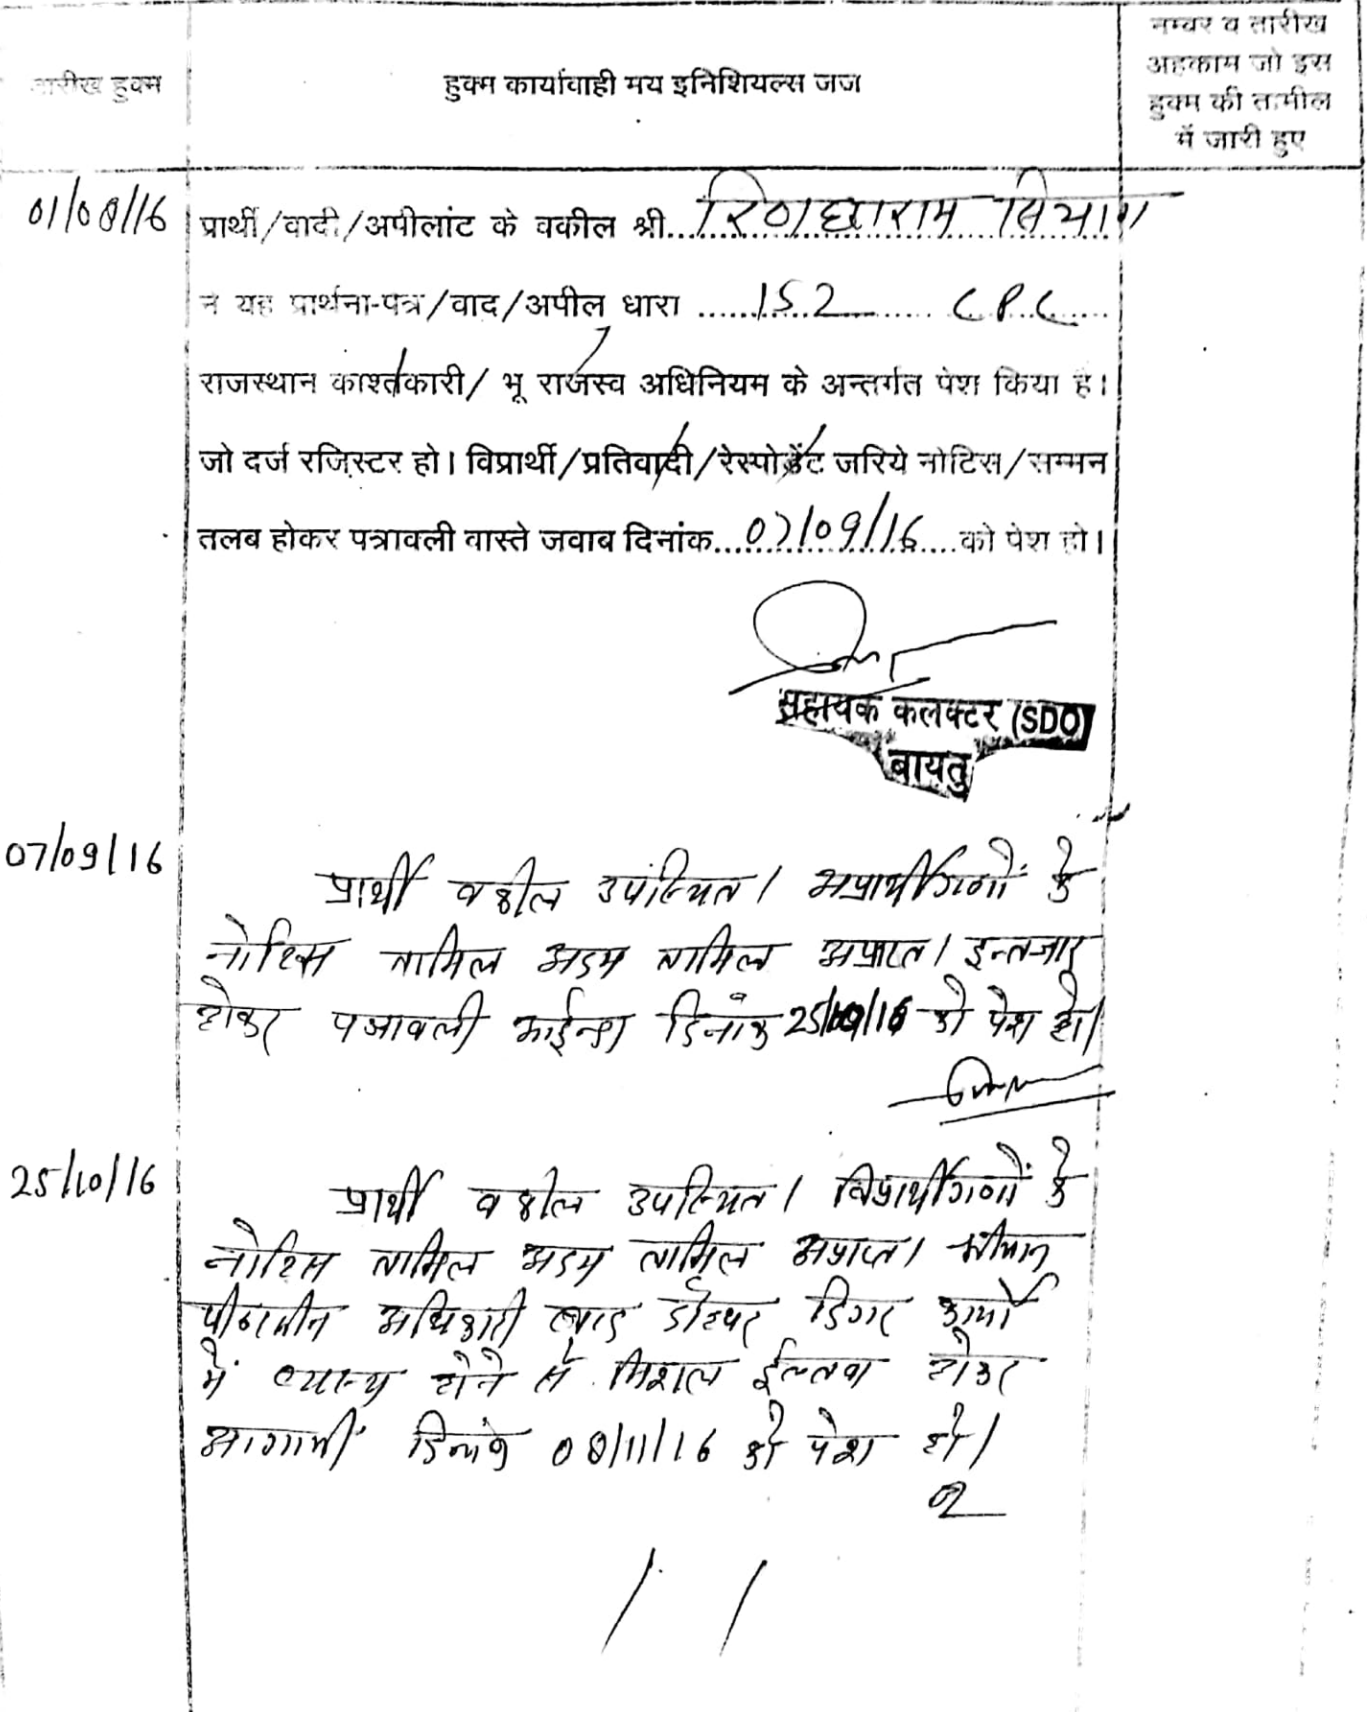 तारीख हुक्म
हुक्म कार्यावाही मय इनिशियल्स जज
नम्बर व तारीख
अहकाम जो इस
हुक्म की तामील
में जारी हुए
01/08/16 प्रार्थी/वादी/अपीलांट के वकील श्री रिणछाराम सियाग
ने यह प्रार्थना-पत्र/वाद/अपील धारा 152 CPC
राजस्थान काश्तकारी/ भू राजस्व अधिनियम के अन्तर्गत पेश किया है।
जो दर्ज रजिस्टर हो। विप्रार्थी/प्रतिवादी/रेस्पोडेंट जरिये नोटिस/सम्मन
तलब होकर पत्रावली वास्ते जवाब दिनांक 07/09/16 को पेश हो।
सहायक कलक्टर (SDO)
बायतु
07/09/16 प्रार्थी वकील उपस्थित। अप्रार्थीगणों के
नोटिस तामिल अदम तामिल अप्राप्त। इन्तजार
होकर पत्रावली आईन्दा दिनांक 25/10/16 को पेश हो।
25/10/16 प्रार्थी वकील उपस्थित। विप्रार्थीगणों के
नोटिस तामिल अदम तामिल अप्राप्त। श्रीमान
पीठासीन अधिकारी डिगर कार्यो
में व्यस्थ होने से मिशल ईल्तवा होकर
आगामी दिनांक 08/11/16 को पेश हो।